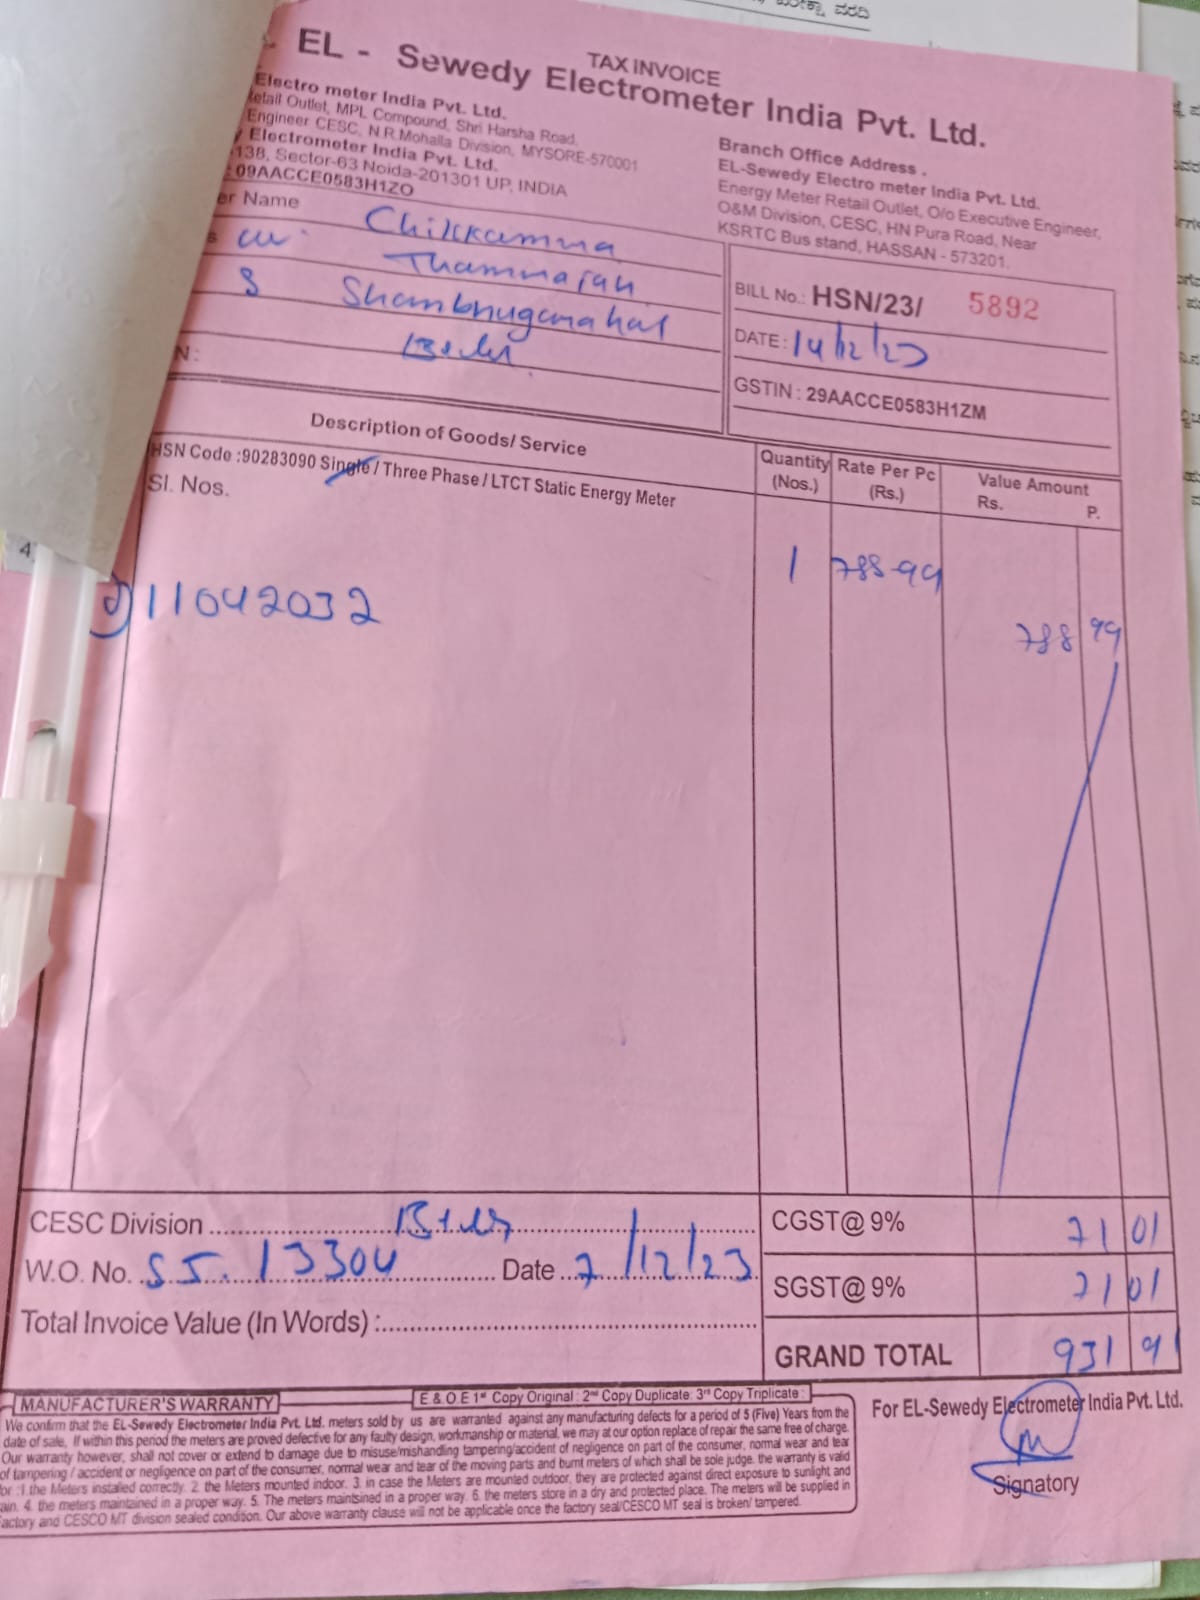 TAX INVOICE
EL - Sewedy Electrometer India Pvt. Ltd.
Electro meter India Pvt. Ltd.
Retail Outlet, MPL Compound, Shri Harsha Road,
Engineer CESC, N.R.Mohalla Division, MYSORE-570001
y Electrometer India Pvt. Ltd.
-138, Sector-63 Noida-201301 UP, INDIA
: 09AACCE0583H1ZO
Branch Office Address .
EL-Sewedy Electro meter India Pvt. Ltd.
Energy Meter Retail Outlet, O/o Executive Engineer,
O&M Division, CESC, HN Pura Road, Near
KSRTC Bus stand, HASSAN - 573201.
er Name Chikkamma
Thammaiah
Shambhuganahal
N :
BILL No.: HSN/23/ 5892
DATE : 14/12/23
GSTIN : 29AACCE0583H1ZM
Description of Goods/ Service
Quantity (Nos.) Rate Per Pc (Rs.) Value Amount Rs. P.
HSN Code :90283090 Single / Three Phase / LTCT Static Energy Meter
Sl. Nos.
1 788-99
11042032
788 99
CESC Division
CGST@ 9% 71 01
W.O. No. SJ. 13304 Date 7/12/23
SGST@ 9% 71 01
Total Invoice Value (In Words) :
GRAND TOTAL 931 91
E & O E 1st Copy Original : 2nd Copy Duplicate: 3rd Copy Triplicate :
MANUFACTURER'S WARRANTY
We confirm that the EL-Sewedy Electrometer India Pvt. Ltd. meters sold by us are warranted against any manufacturing defects for a period of 5 (Five) Years from the
date of sale, If within this period the meters are proved defective for any faulty design, workmanship or material, we may at our option replace of repair the same free of charge.
Our warranty however, shall not cover or extend to damage due to misuse/mishandling tampering/accident of negligence on part of the consumer, normal wear and tear
of tampering / accident or negligence on part of the consumer, normal wear and tear of the moving parts and burnt meters of which shall be sole judge. the warranty is valid
for :1.the Meters installed correctly. 2. the Meters mounted indoor. 3. in case the Meters are mounted outdoor, they are protected against direct exposure to sunlight and
rain. 4. the meters maintained in a proper way. 5. The meters maintsined in a proper way. 6. the meters store in a dry and protected place. The meters will be supplied in
factory and CESCO MT division sealed condition. Our above warranty clause will not be applicable once the factory seal/CESCO MT seal is broken/ tampered.
For EL-Sewedy Electrometer India Pvt. Ltd.
Signatory